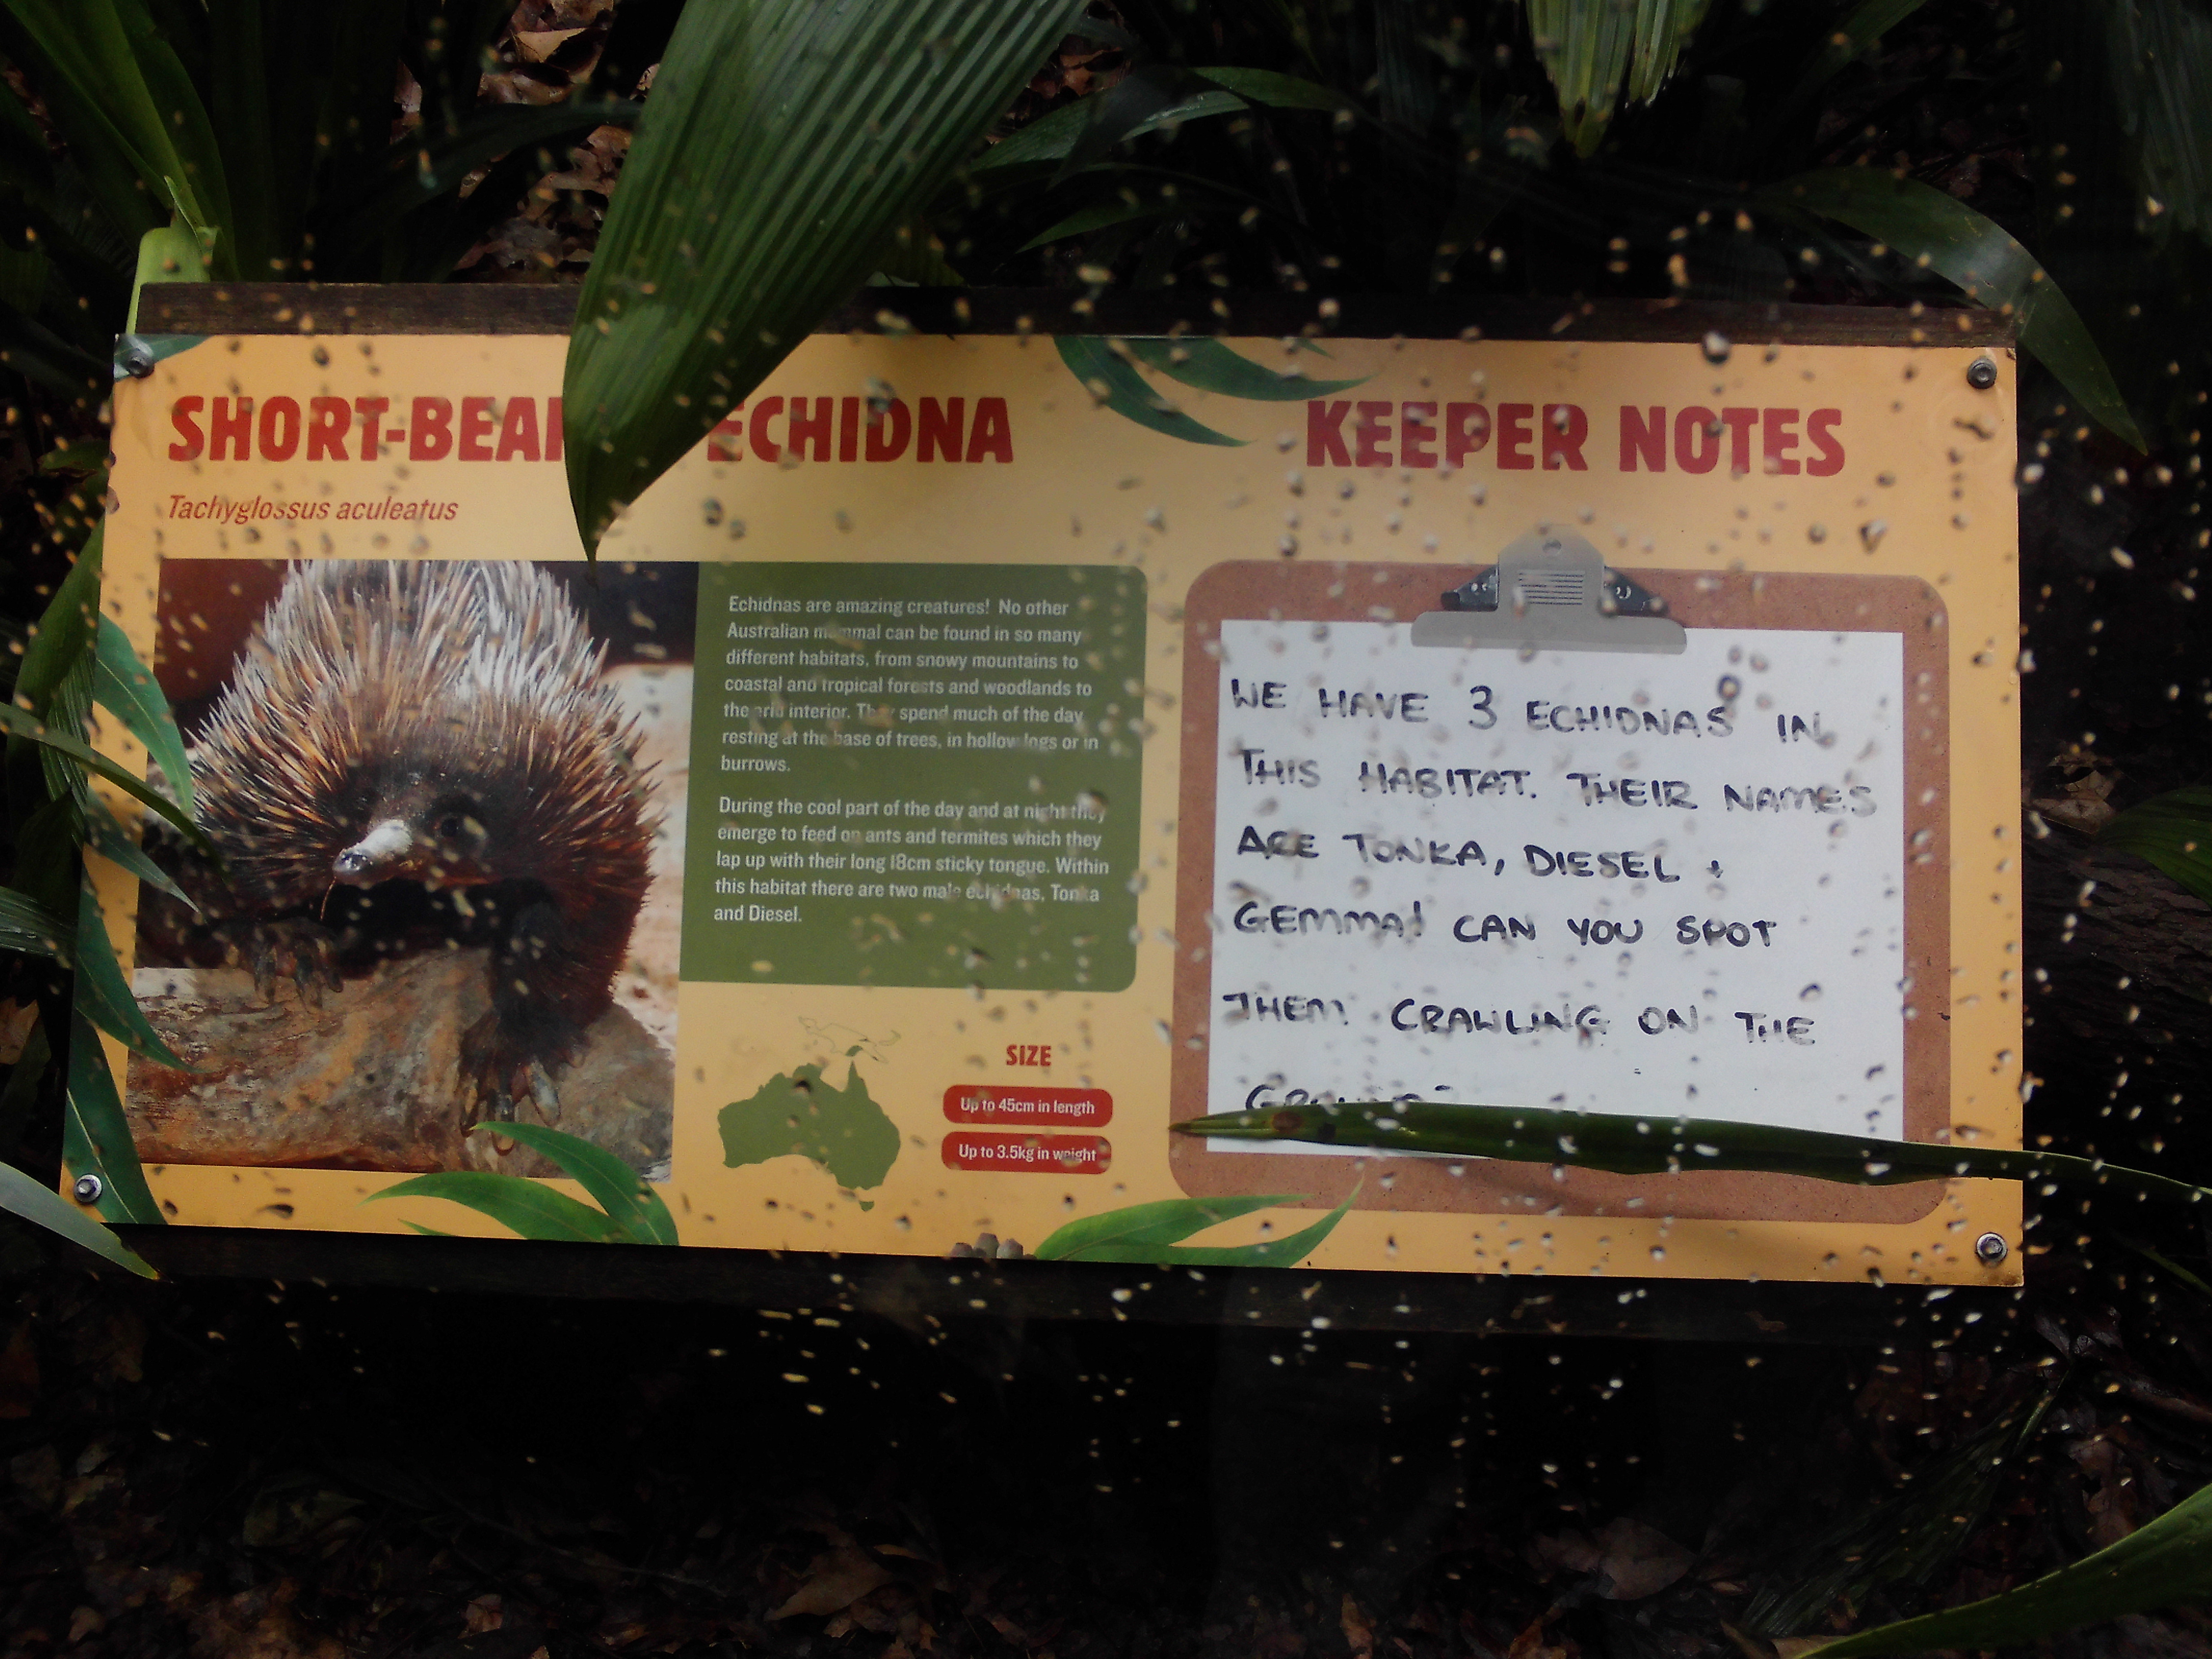 SHORT-BEA ECHIDNA
Tachyglossus aculeatus
Echidnas are amazing creatures! No other
Australian mammal can be found in so many
different habitats, from snowy mountains to
coastal and tropical forests and woodlands to
the arid interior. They spend much of the day
resting at the base of trees, in hollow logs or in
burrows.
During the cool part of the day and at night they
emerge to feed on ants and termites which they
lap up with their long 18cm sticky tongue. Within
this habitat there are two male echidnas, Tonka
and Diesel.
SIZE
Up to 45cm in length
Up to 3.5kg in weight
KEEPER NOTES
WE HAVE 3 ECHIDNAS IN
THIS HABITAT. THEIR NAMES
ARE TONKA, DIESEL +
GEMMA! CAN YOU SPOT
THEM CRAWLING ON THE
GROUND?